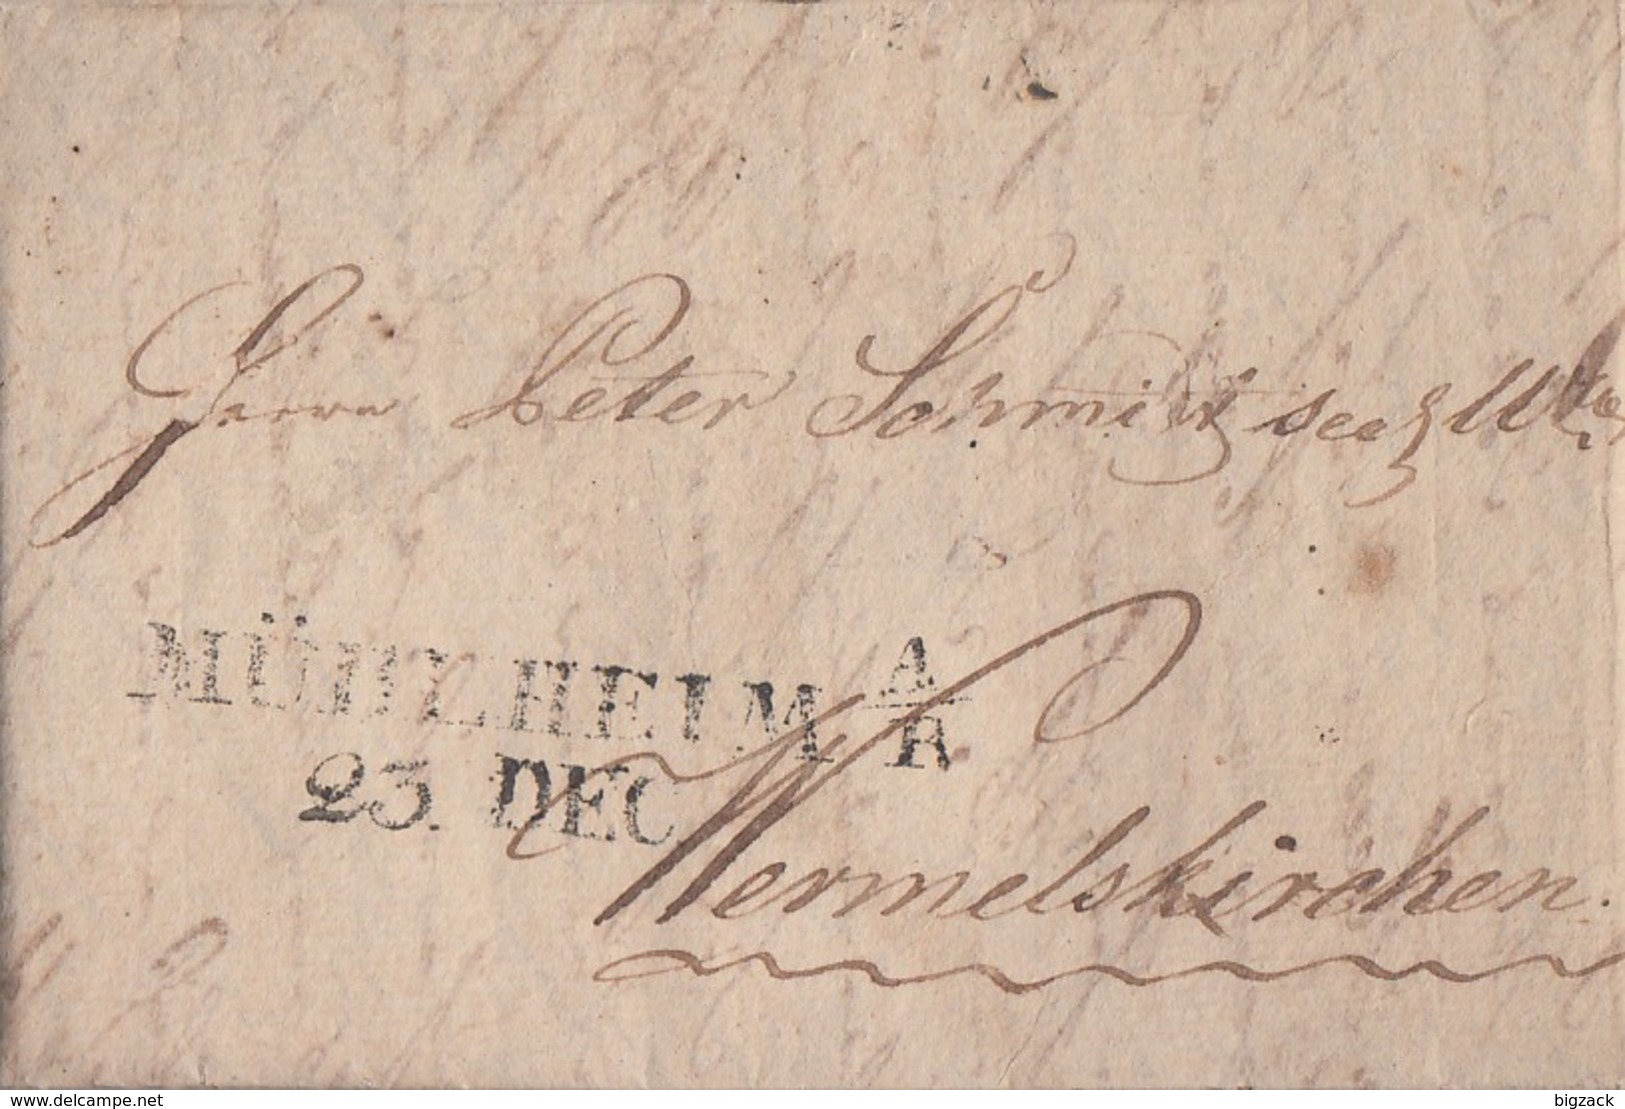 Herrn Peter Schmitz seel Wwe
MÜHLHEIM A/R
23. DEC
Wermelskirchen.
www.delcampe.net
bigzack